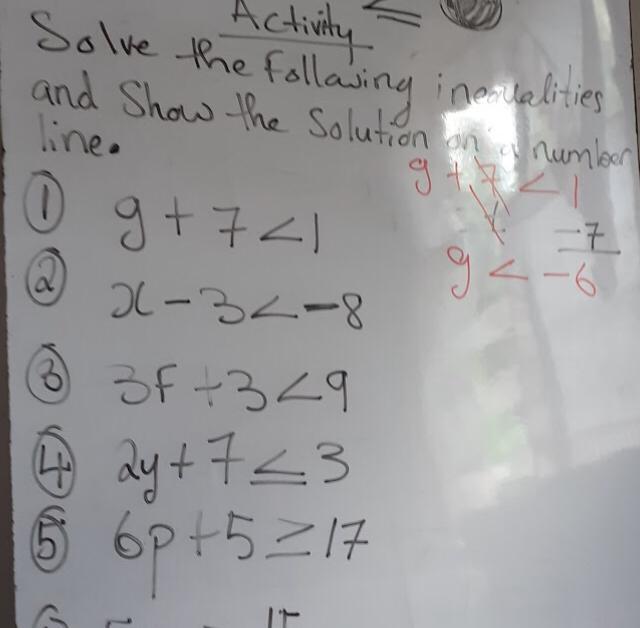 Activity
Solve the following inequalities
and Show the Solution on a number
line.
① g + 7 < 1
② x - 3 < -8
③ 3f + 3 < 9
④ 2y + 7 ≤ 3
⑤ 6p + 5 ≥ 17
g + 7 < 1
-7
g < -6